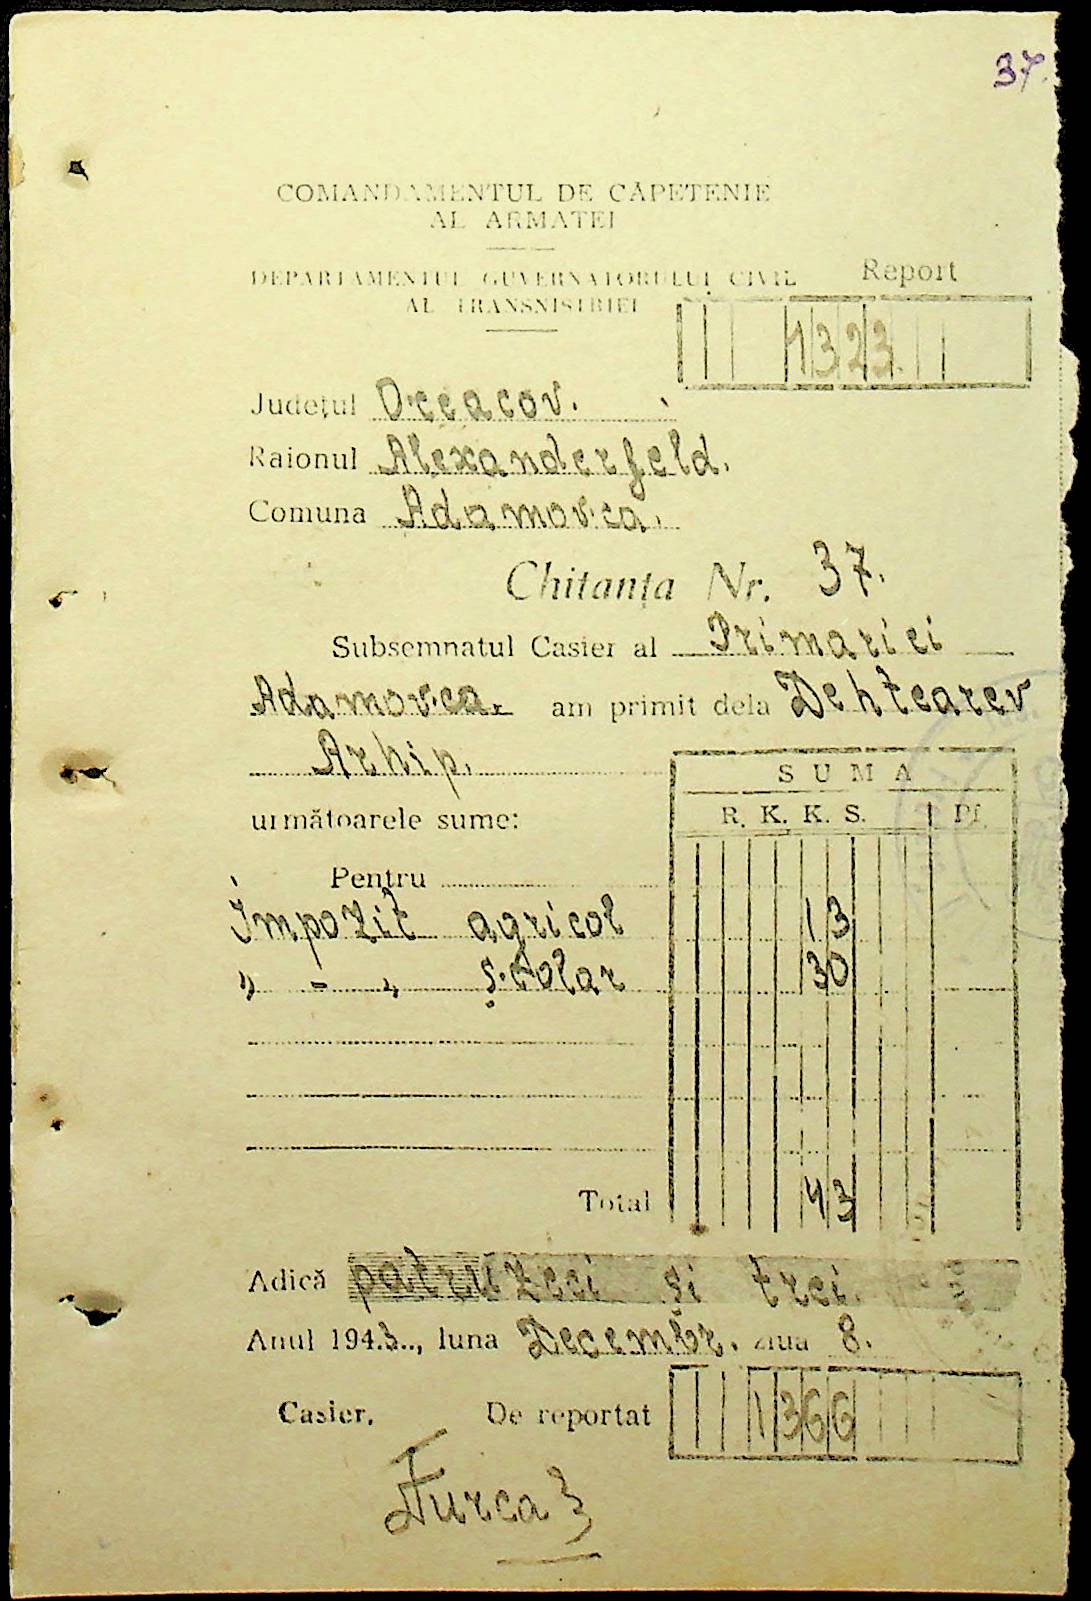 37.
COMANDAMENTUL DE CĂPETENIE
AL ARMATEI
DEPARTAMENTUL GUVERNATORULUI CIVIL
AL TRANSNISTRIEI
Report
1323.
Județul Oceacov.
Raionul Alexanderfeld.
Comuna Adamovca.
Chitanța Nr. 37.
Subsemnatul Casier al Primariei
Adamovca. am primit dela Dehtearev
Arhip.
SUMA
următoarele sume: R. K. K. S. Pf.
Pentru
Impozit agricol 13
" - " școlar 30
Total 43
Adică patruzeci și trei.
Anul 1943.., luna Decembr. ziua 8.
Casier, De reportat 1366
Țurca